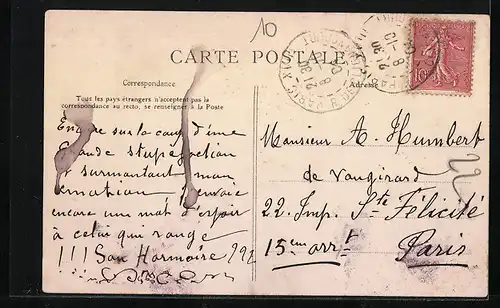 10
CARTE POSTALE
Correspondance
Adresse
Tous les pays étrangers n'acceptent pas la
correspondance au recto, se renseigner à la Poste
Encore sur la coup d'une
Grande stupéfaction
et surmontant mon
émation j'envoie
encore un mot d'espoir
à celui qui range
!!! Son Harmoire ???
Monsieur A. Humbert
de Vaugirard
22. Imp. Ste Félicité
15em arrt
Paris
22
10